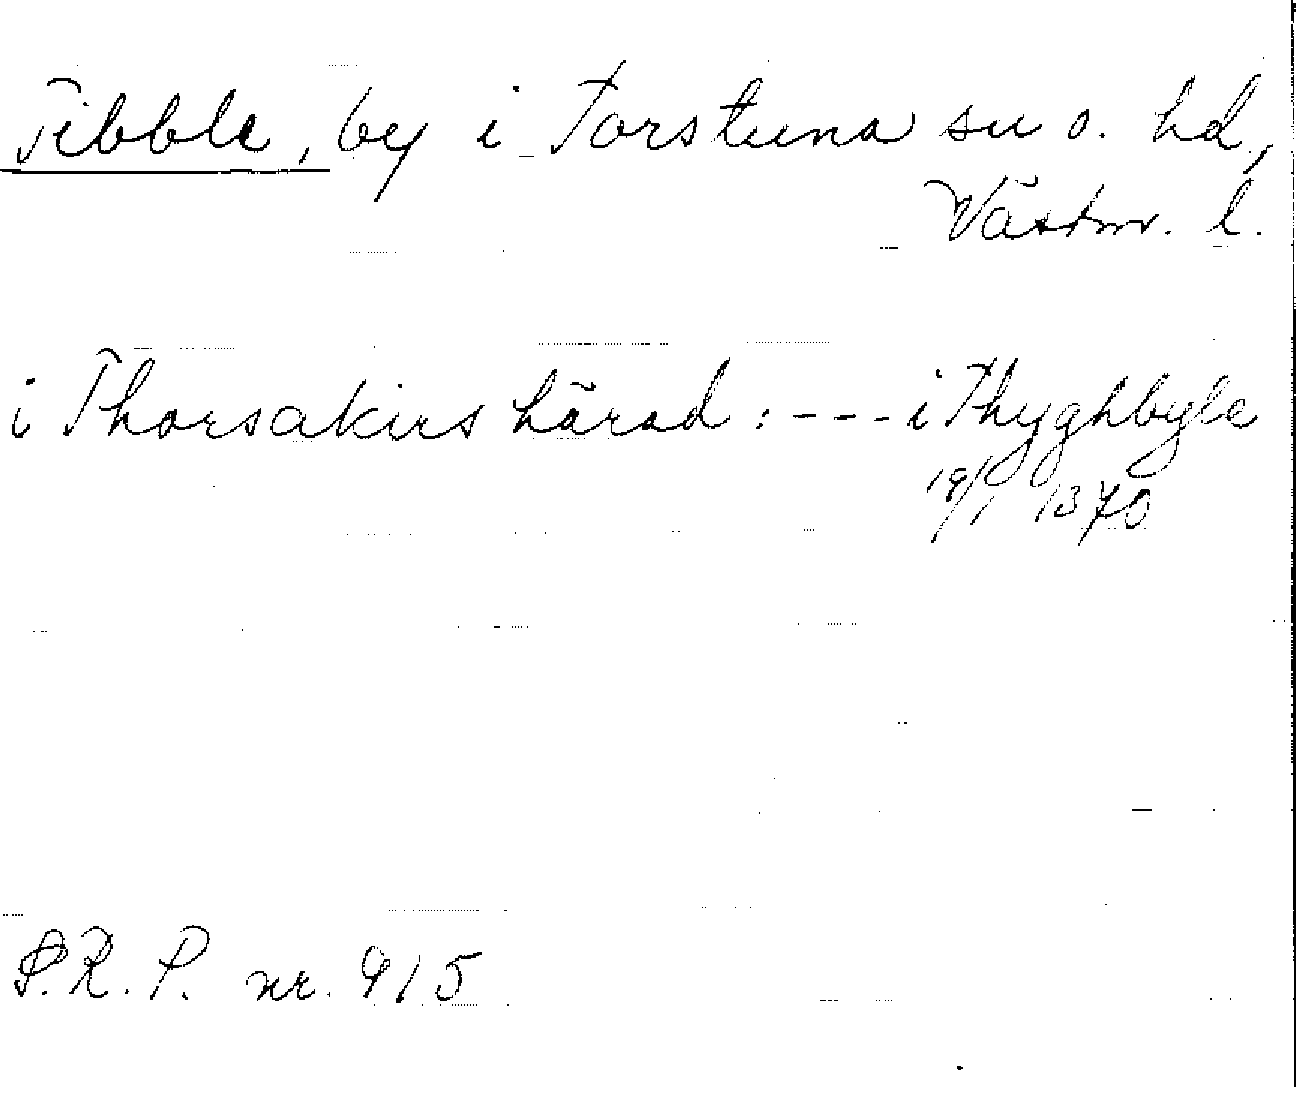 Tibble, by i Torstuna sn o. hd,
Västm. l.
i Thorsakirs härad : --- i Thyghbyle
19/1 1370
S.R.P. nr. 915